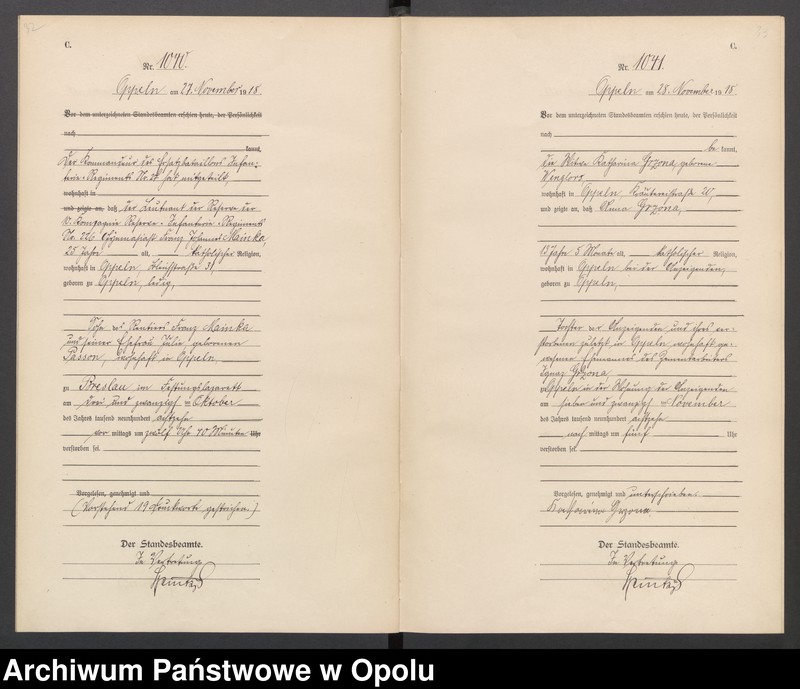 C.
Nr. 1040.
Oppeln am 27. November 1918.
Vor dem unterzeichneten Standesbeamten erschien heute, der Persönlichkeit
nach
kannt,
Der Kommandeur des Ersatzbataillons Infan-
terie-Regiments Nr. hat mitgeteilt,
wohnhaft in
und zeigte an, daß der Leutnant der Reserve der
Kompagnie Reserve-Infanterie-Regiments
Nr. 226 Franz Johannes Mainka,
25 Jahre alt, katholischer Religion,
wohnhaft in Oppeln, 31,
geboren zu Oppeln, ledig,
Sohn des Rentiers Franz Mainka
und seiner Ehefrau geborenen
Passon, wohnhaft in Oppeln
zu Breslau im Festungslazarett
am drei und zwanzigsten Oktober
des Jahres tausend neunhundert achtzehn
vor mittags um zwölf Uhr 10 Minuten Uhr
verstorben sei.
Vorgelesen, genehmigt und
(Vorstehend 19 Druckworte gestrichen.)
Der Standesbeamte.
In Vertretung
C.
Nr. 1041.
Oppeln am 28. November 1918.
Vor dem unterzeichneten Standesbeamten erschien heute, der Persönlichkeit
nach
be kannt,
die Witwe Katharina Grzona, geborene
wohnhaft in Oppeln, 20,
und zeigte an, daß Grzona,
13 Jahre 5 Monate alt, katholischer Religion,
wohnhaft in Oppeln bei der Anzeigenden,
geboren zu Oppeln,
Tochter der Anzeigenden und ihres ver-
storbenen zuletzt in Oppeln wohnhaft ge-
wesenen Ehemannes des Zementarbeiters
Ignaz Grzona
zu Oppeln in der Wohnung der Anzeigenden
am sieben und zwanzigsten November
des Jahres tausend neunhundert achtzehn
nach mittags um fünf Uhr
verstorben sei.
Vorgelesen, genehmigt und unterschrieben
Katharina Grzona
Der Standesbeamte.
In Vertretung
Archiwum Państwowe w Opolu